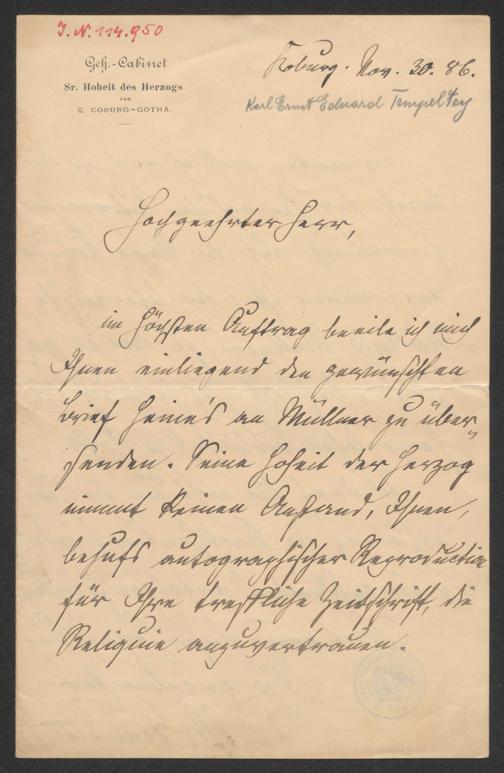 J. N. 114.950
Geh.-Cabinet
Sr. Hoheit des Herzogs
von
S. COBURG-GOTHA.
Koburg. Nov. 30. 86.
Karl Ernst Eduard Tempeltey
Hochgeehrter Herr,
im höchsten Auftrag beeile ich mich
Ihnen einliegend den gewünschten
Brief Heine's an Müllner zu über-
senden. Seine Hoheit der Herzog
nimmt keinen Anstand, Ihnen,
behufs autographischer Reproduction
für Ihre treffliche Zeitschrift, die
Reliquie anzuvertrauen.